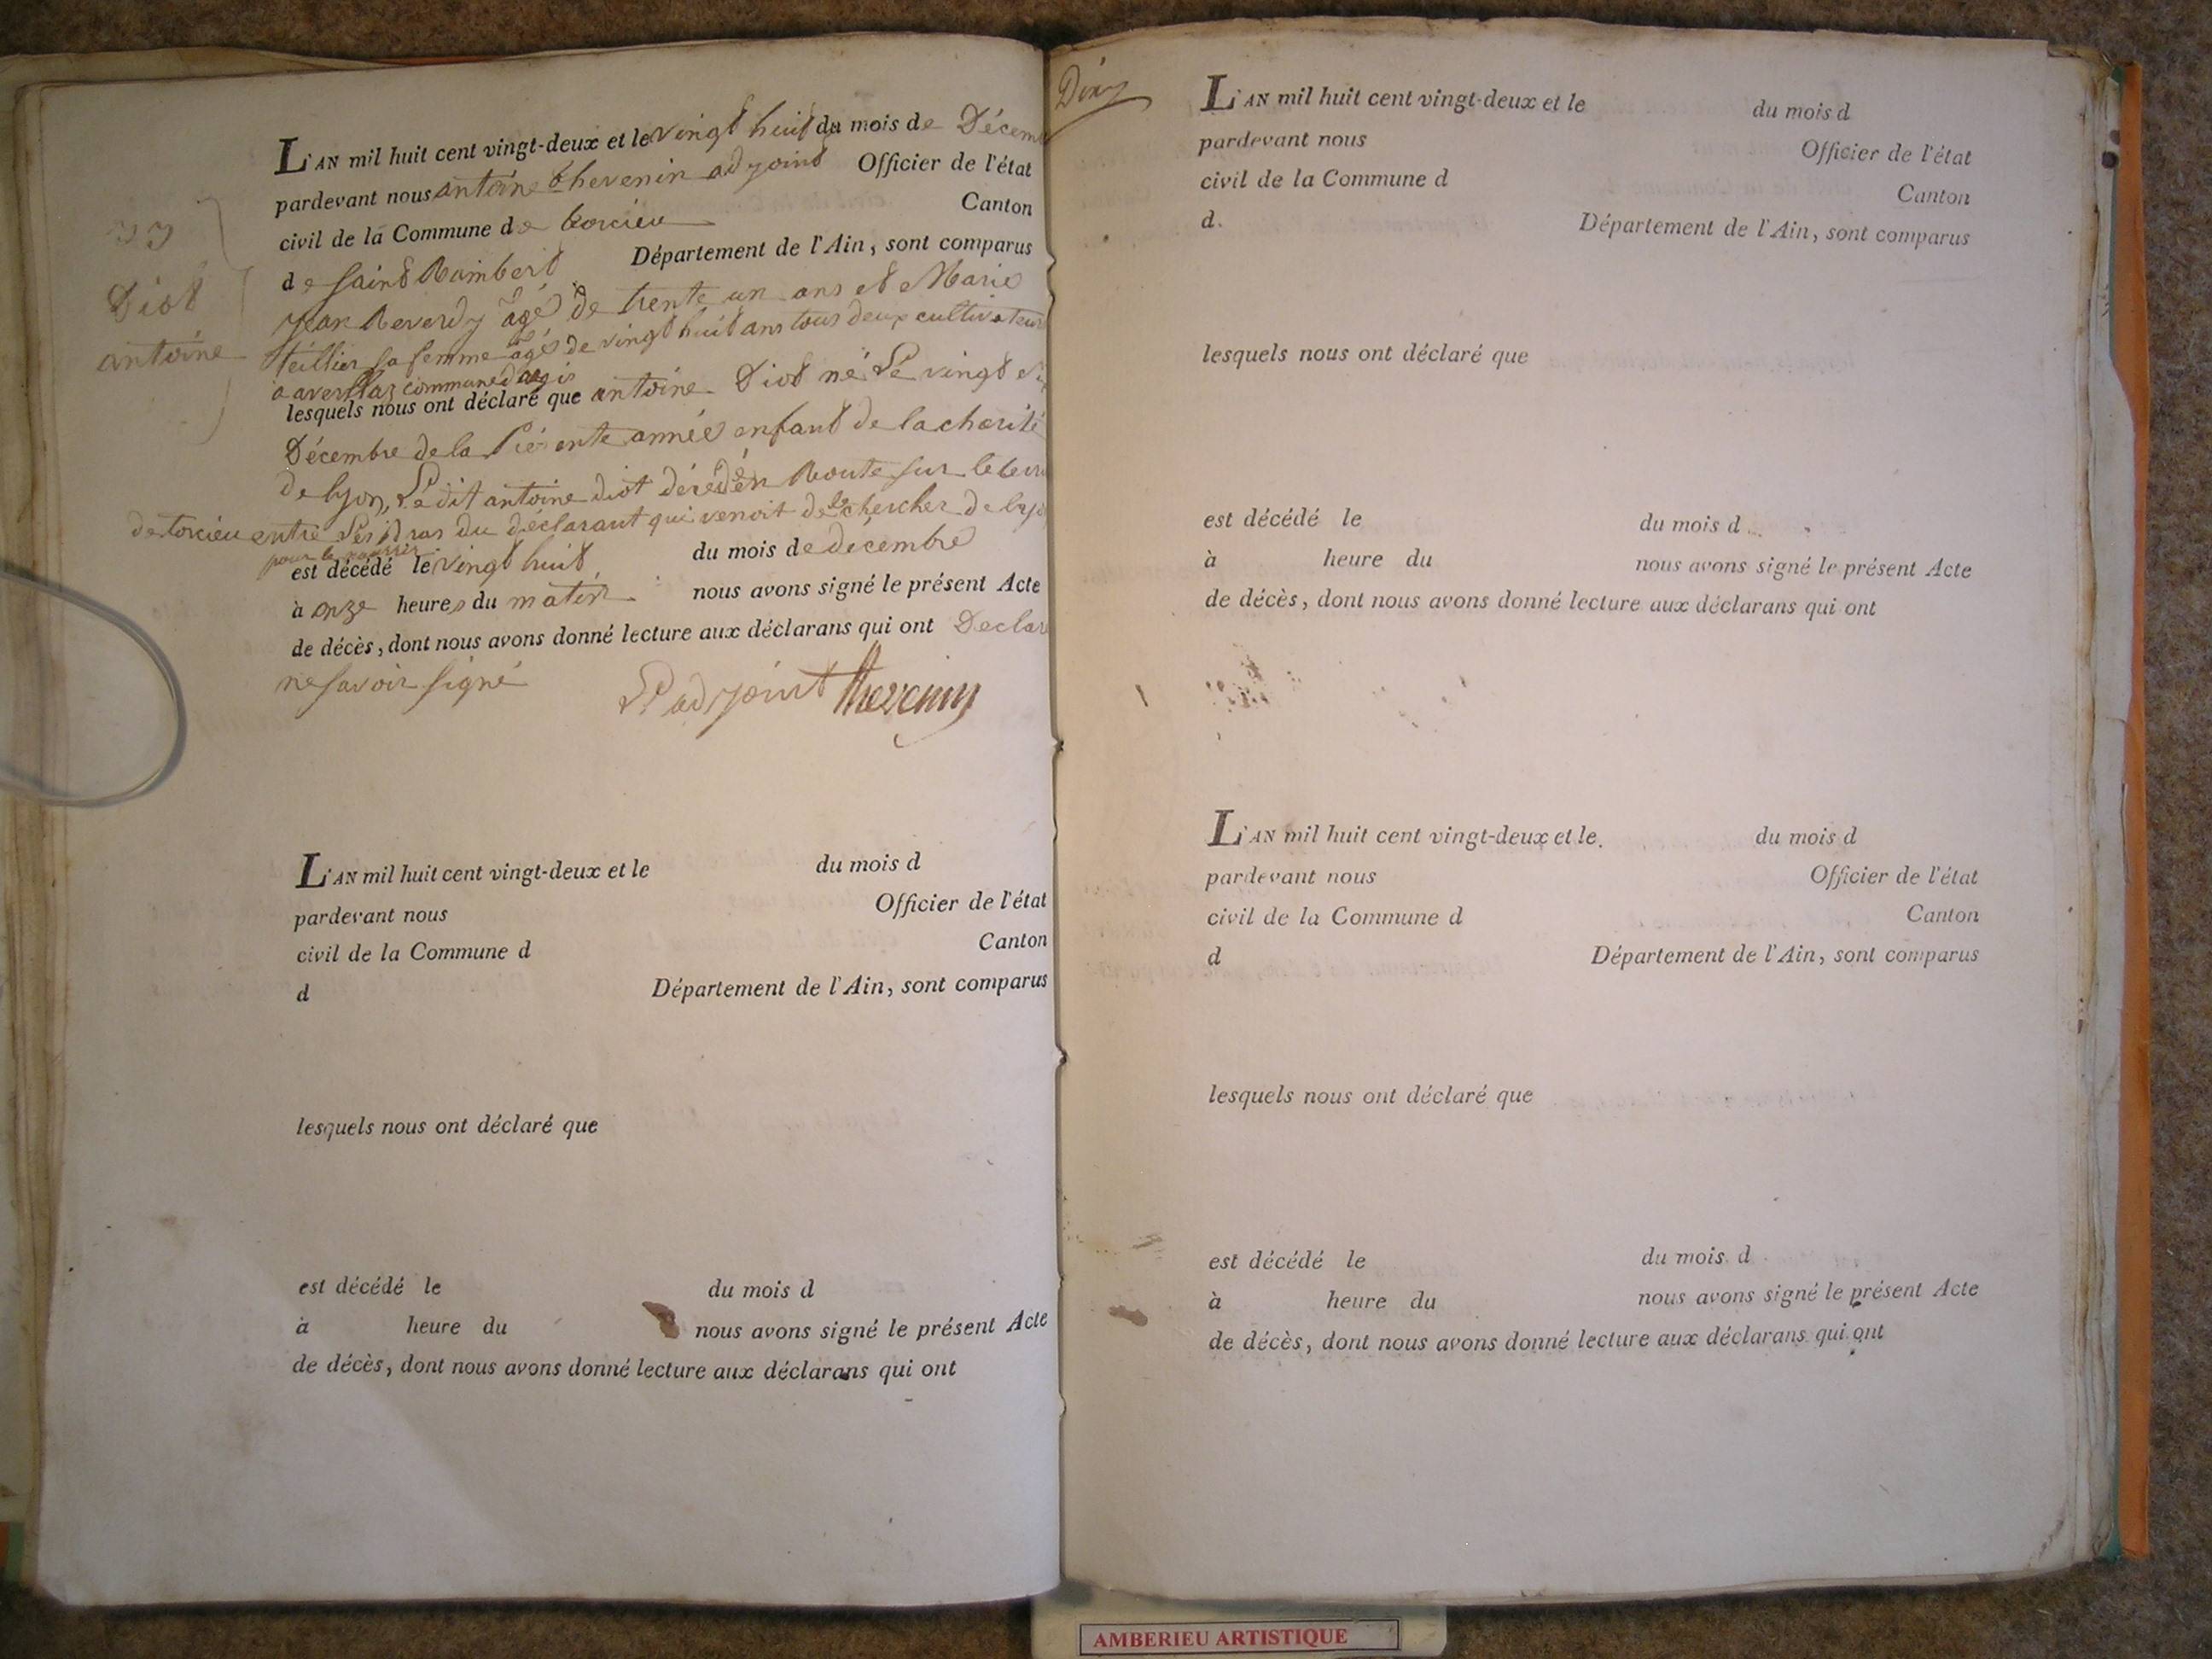 L'AN mil huit cent vingt-deux et le vingt huit du mois de Décem
pardevant nous antoine thevenin adjoint Officier de l'état
civil de la Commune de torcieu Canton
de saint Rambert Département de l'Ain, sont comparus
jean Reverdy agé de trente un ans et Marie
teillier sa femme agés de vingt huit ans tous deux cultivateur
a commune d'argis
lesquels nous ont déclaré que antoine Diot né Le vingt
Décembre de la Présente année enfant de la charité
de lyon, Le dit antoine diot décédé en Route sur le
de torcieu entre Les bras du déclarant qui venoit de le chercher de
pour le nourrir
est décédé le vingt huit du mois de decembre
à onze heures du matin nous avons signé le présent Acte
de décès, dont nous avons donné lecture aux déclarans qui ont Declar
ne savoir signé
L'adjoint thevenin
Diot
antoine
L'AN mil huit cent vingt-deux et le du mois d
pardevant nous Officier de l'état
civil de la Commune d Canton
d Département de l'Ain, sont comparus
lesquels nous ont déclaré que
est décédé le du mois d
à heure du nous avons signé le présent Acte
de décès, dont nous avons donné lecture aux déclarans qui ont
L'AN mil huit cent vingt-deux et le du mois d
pardevant nous Officier de l'état
civil de la Commune d Canton
d. Département de l'Ain, sont comparus
lesquels nous ont déclaré que
est décédé le du mois d
à heure du nous avons signé le présent Acte
de décès, dont nous avons donné lecture aux déclarans qui ont
L'AN mil huit cent vingt-deux et le. du mois d
pardevant nous Officier de l'état
civil de la Commune d Canton
d Département de l'Ain, sont comparus
lesquels nous ont déclaré que
est décédé le du mois d
à heure du nous avons signé le présent Acte
de décès, dont nous avons donné lecture aux déclarans qui ont
AMBERIEU ARTISTIQUE